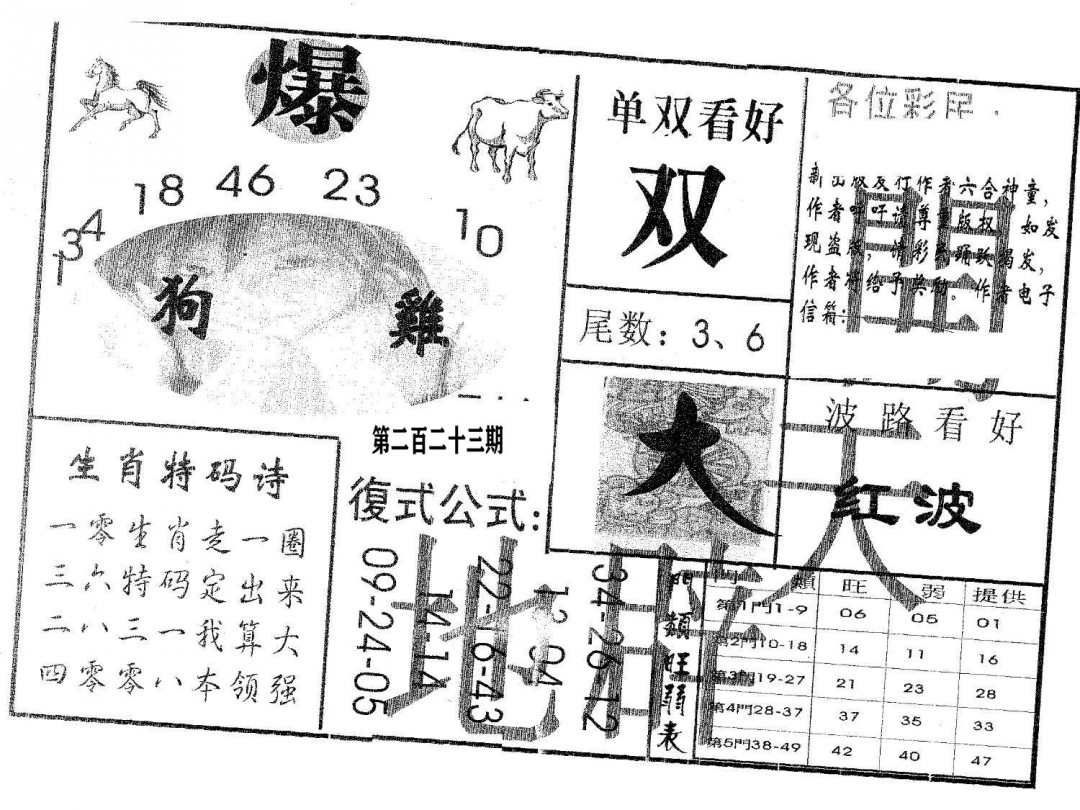 爆
18 46 23
34 10
1
狗 雞
单双看好
双
尾数：3、6
各位彩民
新出版发行作者六合神童，
作者呼吁请尊重版权，如发
现盗版，请彩民踊跃揭发，
作者将给予奖励。作者电子
信箱：
大
波路看好
红波
第二百二十三期
生肖特码诗
一零生肖走一圈
三六特码定出来
二八三一我算大
四零零八本领强
復式公式：
09-24-05
14-14
22-16-43
12 04
34-26-12
門類旺弱表
門 類 旺 弱 提供
第1門1-9 06 05 01
第2門10-18 14 11 16
第3門19-27 21 23 28
第4門28-37 37 35 33
第5門38-49 42 40 47